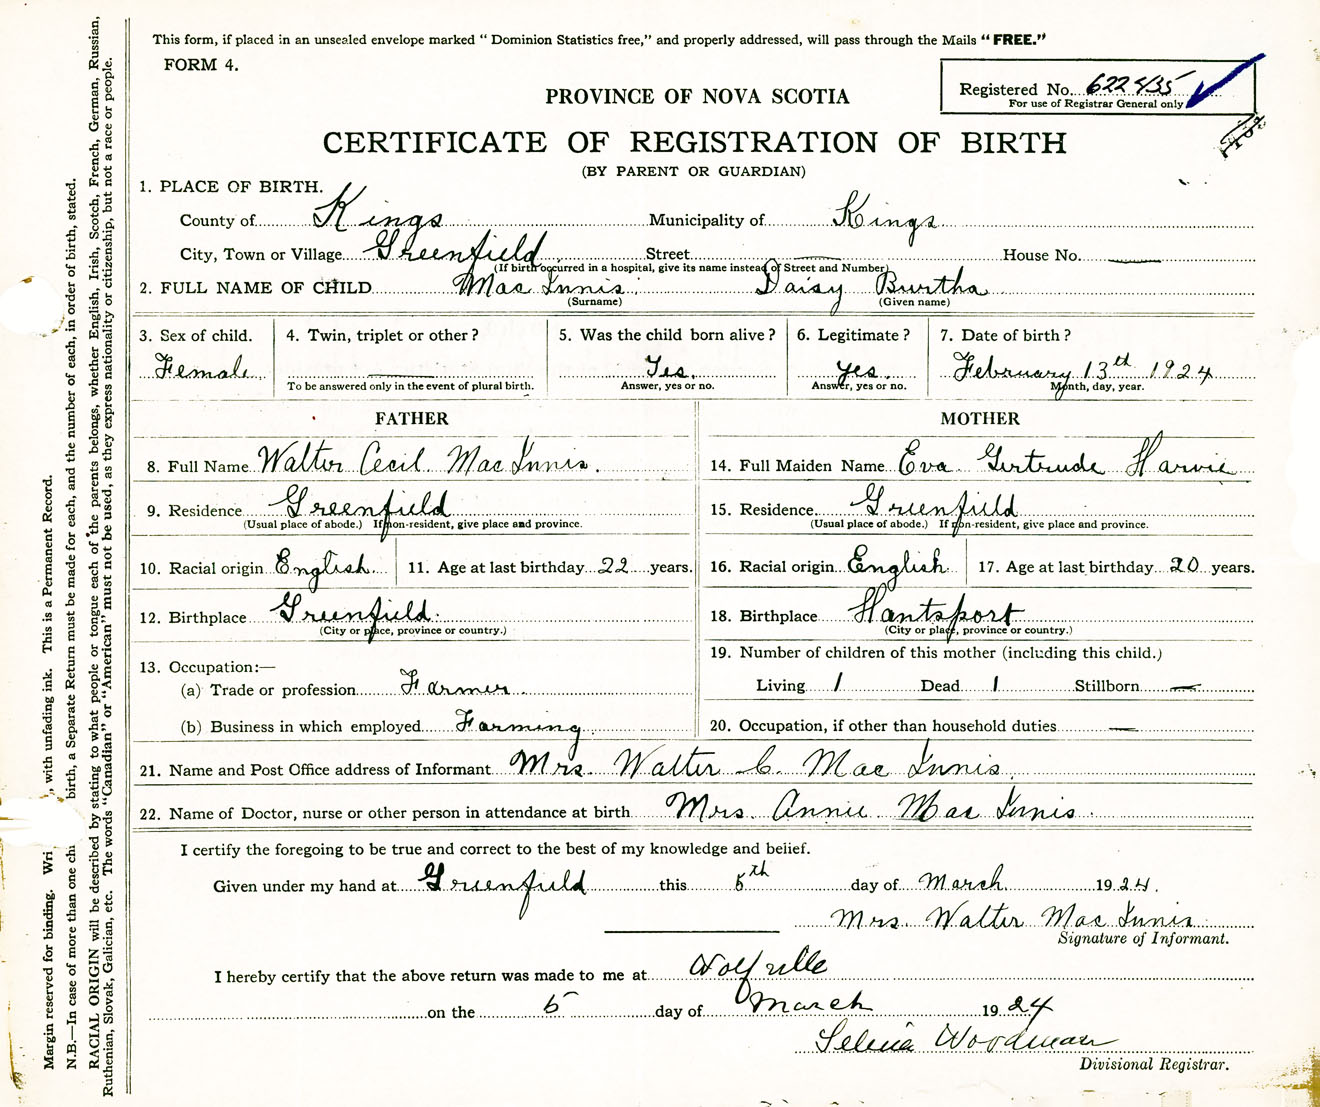 This form, if placed in an unsealed envelope marked “ Dominion Statistics free,” and properly addressed, will pass through the Mails “ FREE.”
FORM 4.
Registered No. 622435
For use of Registrar General only
PROVINCE OF NOVA SCOTIA
CERTIFICATE OF REGISTRATION OF BIRTH
(BY PARENT OR GUARDIAN)
1. PLACE OF BIRTH.
County of Kings Municipality of Kings
City, Town or Village Greenfield Street — House No. —
(If birth occurred in a hospital, give its name instead of Street and Number)
2. FULL NAME OF CHILD Mac Innis Daisy Burtha
(Surname) (Given name)
3. Sex of child. 4. Twin, triplet or other ? 5. Was the child born alive ? 6. Legitimate ? 7. Date of birth ?
Female — Yes. yes. February 13th 1924
To be answered only in the event of plural birth. Answer, yes or no. Answer, yes or no. Month, day, year.
FATHER MOTHER
8. Full Name Walter Cecil Mac Innis. 14. Full Maiden Name Eva Gertrude Harvie
9. Residence Greenfield 15. Residence. Greenfield
(Usual place of abode.) If non-resident, give place and province. (Usual place of abode.) If non-resident, give place and province.
10. Racial origin English 11. Age at last birthday 22 years. 16. Racial origin English 17. Age at last birthday 20 years.
12. Birthplace Greenfield. 18. Birthplace Hantsport
(City or place, province or country.) (City or place, province or country.)
13. Occupation:— 19. Number of children of this mother (including this child.)
(a) Trade or profession Farmer Living 1 Dead 1 Stillborn —
(b) Business in which employed Farming. 20. Occupation, if other than household duties —
21. Name and Post Office address of Informant Mrs. Walter C. Mac Innis.
22. Name of Doctor, nurse or other person in attendance at birth Mrs. Annie Mac Innis.
I certify the foregoing to be true and correct to the best of my knowledge and belief.
Given under my hand at Greenfield this 5th day of March 1924.
Mrs. Walter Mac Innis
Signature of Informant.
I hereby certify that the above return was made to me at Wolfville
on the 5 day of March 1924
Selenia Woodman
Divisional Registrar.
Margin reserved for binding. Wri , with unfading ink. This is a Permanent Record.
N.B.—In case of more than one chi birth, a Separate Return must be made for each, and the number of each, in order of birth, stated.
RACIAL ORIGIN will be described by stating to what people or tongue each of the parents belongs, whether English, Irish, Scotch, French, German, Russian,
Ruthenian, Slovak, Galician, etc. The words “Canadian” or “American” must not be used, as they express nationality or citizenship, but not a race or people.